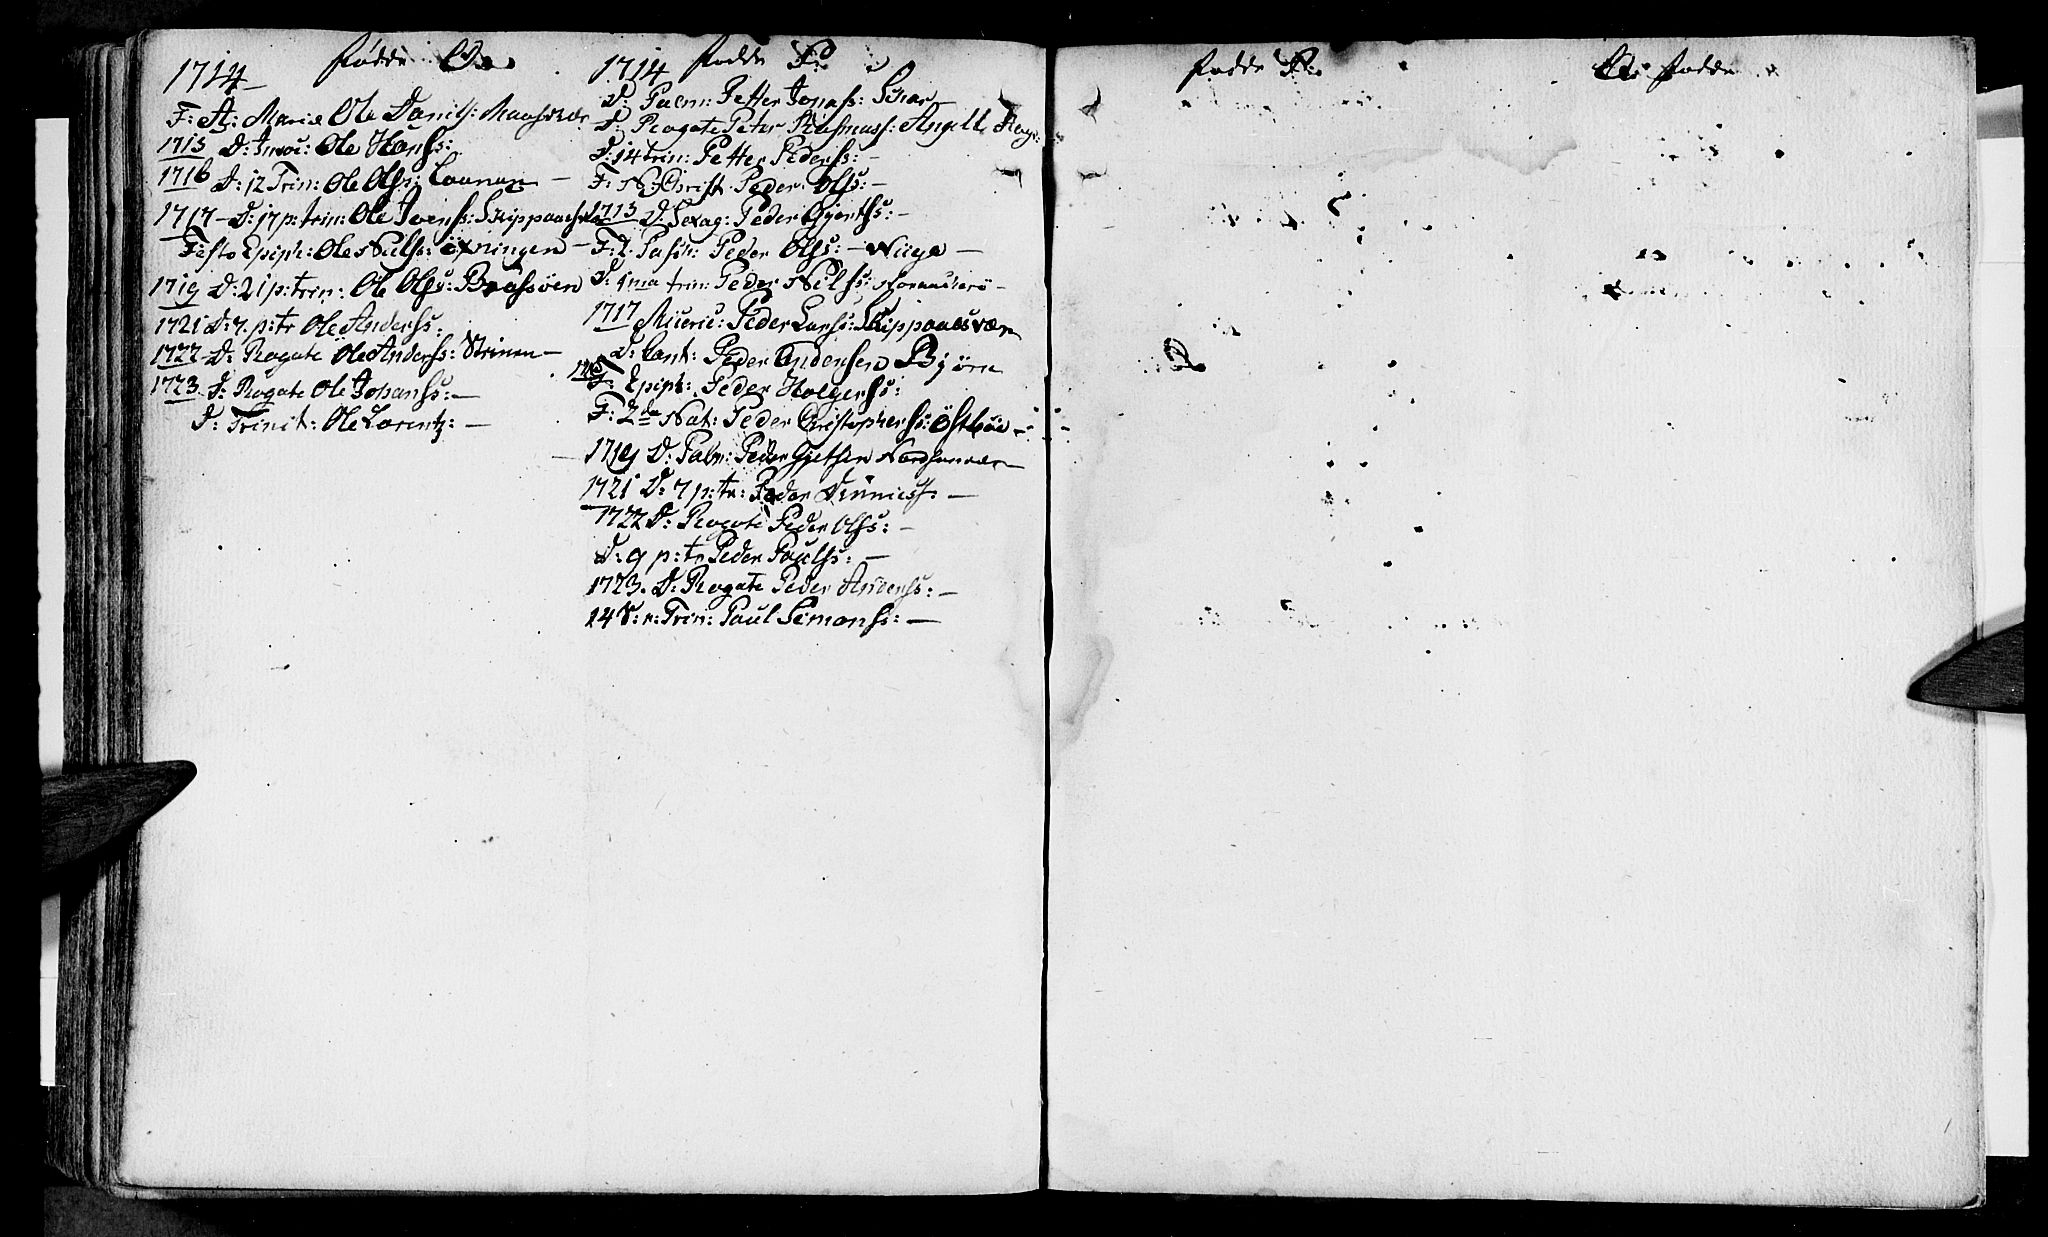 fødde O:
1714
F: A: Mariæ Ole Daniels: Maasvær
1715 D: Invoc: Ole Hanss:
1716 D: 12 Trin: Ole Olss:
1717 - D: 17 p: trin: Ole Ivenss: Skippaasvær
Festo Epiph: Ole Nilss: Öxningen -
1719 D: 21 p: trin: Ole Olss: Brasöen
1721 D: 7. p: tr Ole Anderss:
1722 D: Rogate Ole Anderss: Strinen -
1723 D: Rogate Ole Johanss: -
D: Trinit: Ole Lorentz: -
1714 fødde P:
D: Palm: Petter Jonass: Skar
D: Rogate Peter Rasmuss: Angell
D: 14 trin: Petter Pederss: -
F: N: Christ. Peder Olss: -
1715 D. Sexag: Peder Gjertss: -
F: 2 Pasch: Peder Olss: -
D: 9ma trin: Peder Nilss:
1717 Miseric: Peder Larss: Skippaasvær
D: Cant: Peder Andersen Bjørn
F: Epiph: Peder Holgerss:
F: 2da Nat: Peder Christopherss: Östböe -
1719 D: Palm: Peder Gjetsen
1721 D: 7 p: tr: Peder
1722 D: Rogate Peder Olss: -
D: 9 p: tr Peder Paulss: -
1723. D: Rogate Peder Anderss: -
14 D: p: Trin: Paul Simonss: -
fødde P:
Q: fødde